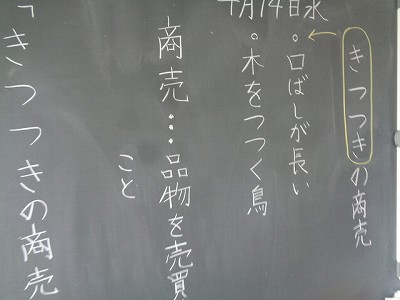 月14日水
きつつきの商売
・口ばしが長い
・木をつつく鳥
商売…品物を売買
こと
「きつつきの商売